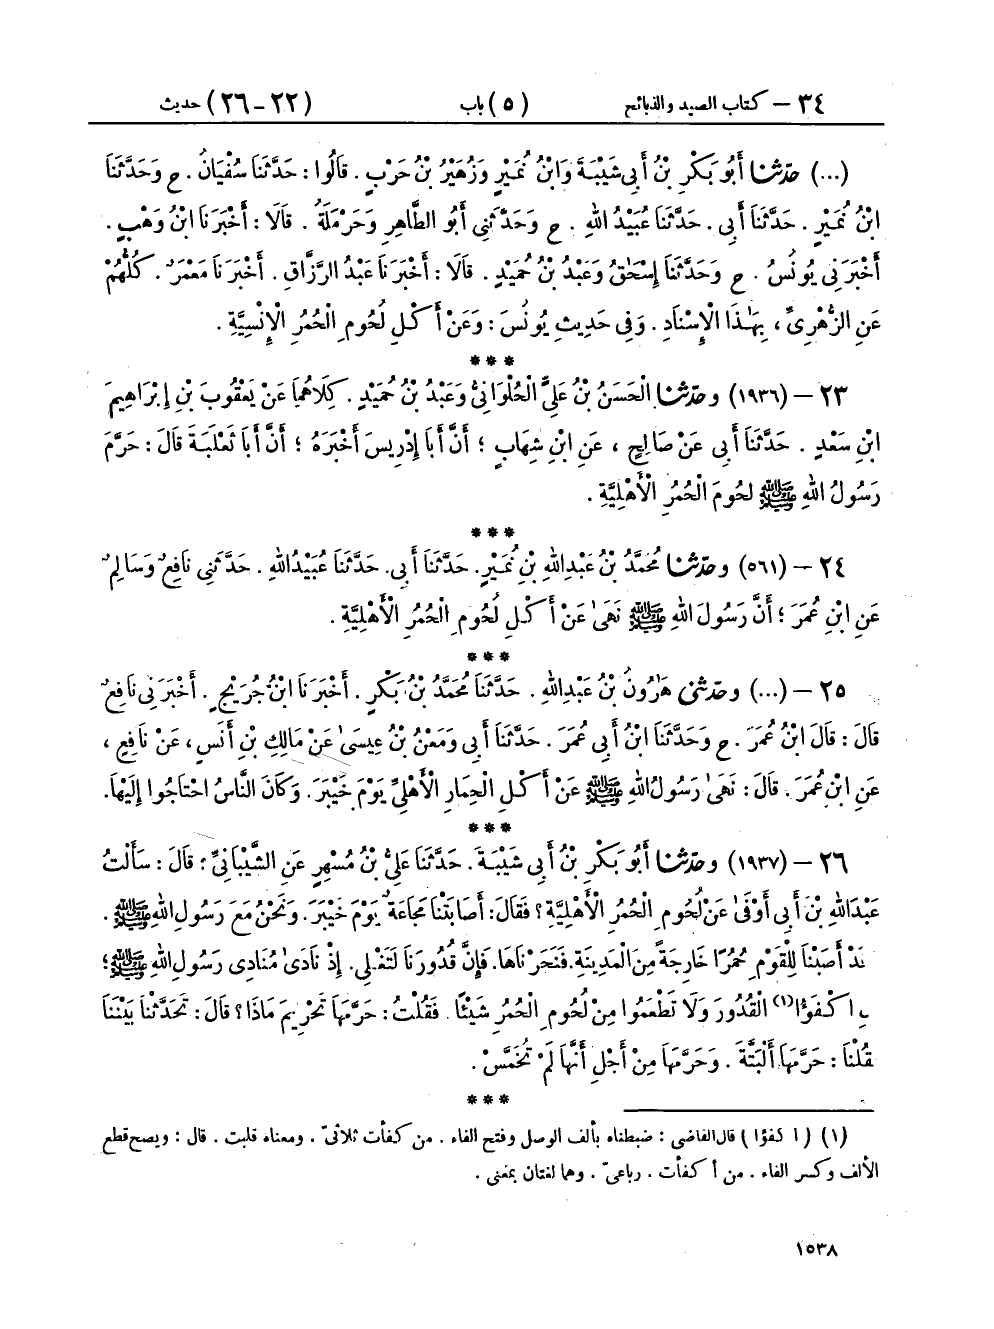 ٣٤ – كتاب الصيد والذبائح (٥) باب (٢٢-٢٦) حديث
(...) حَدَّثَنَا أَبُو بَكْرِ بْنُ أَبِي شَيْبَةَ وَابْنُ نُمَيْرٍ وَزُهَيْرُ بْنُ حَرْبٍ . قَالُوا : حَدَّثَنَا سُفْيَانُ . ح وَحَدَّثَنَا
ابْنُ نُمَيْرٍ . حَدَّثَنَا أَبِي . حَدَّثَنَا عُبَيْدُ اللهِ . ح وَحَدَّثَنِي أَبُو الطَّاهِرِ وَحَرْمَلَةُ . قَالَا : أَخْبَرَنَا ابْنُ وَهْبٍ .
أَخْبَرَنِي يُونُسُ . ح وَحَدَّثَنَا إِسْحَٰقُ وَعَبْدُ بْنُ حُمَيْدٍ . قَالَا : أَخْبَرَنَا عَبْدُ الرَّزَّاقِ . أَخْبَرَنَا مَعْمَرٌ . كُلُّهُمْ
عَنِ الزُّهْرِيِّ ، بِهَٰذَا الْإِسْنَادِ . وَفِي حَدِيثِ يُونُسَ : وَعَنْ أَكْلِ لُحُومِ الْحُمُرِ الْإِنْسِيَّةِ .
***
٢٣ – (١٩٣٦) وحَدَّثَنَا الْحَسَنُ بْنُ عَلِيٍّ الْحُلْوَانِيُّ وَعَبْدُ بْنُ حُمَيْدٍ . كِلَاهُمَا عَنْ يَعْقُوبَ بْنِ إِبْرَاهِيمَ
ابْنِ سَعْدٍ . حَدَّثَنَا أَبِي عَنْ صَالِحٍ ، عَنِ ابْنِ شِهَابٍ ؛ أَنَّ أَبَا إِدْرِيسَ أَخْبَرَهُ ؛ أَنَّ أَبَا ثَعْلَبَةَ قَالَ : حَرَّمَ
رَسُولُ اللهِ ﷺ لُحُومَ الْحُمُرِ الْأَهْلِيَّةِ .
***
٢٤ – (٥٦١) وحَدَّثَنَا مُحَمَّدُ بْنُ عَبْدِ اللهِ بْنِ نُمَيْرٍ . حَدَّثَنَا أَبِي . حَدَّثَنَا عُبَيْدُ اللهِ . حَدَّثَنِي نَافِعٌ وَسَالِمٌ
عَنِ ابْنِ عُمَرَ ؛ أَنَّ رَسُولَ اللهِ ﷺ نَهَىٰ عَنْ أَكْلِ لُحُومِ الْحُمُرِ الْأَهْلِيَّةِ .
***
٢٥ – (...) وحَدَّثَنِي هَٰرُونُ بْنُ عَبْدِ اللهِ . حَدَّثَنَا مُحَمَّدُ بْنُ بَكْرٍ . أَخْبَرَنَا ابْنُ جُرَيْجٍ . أَخْبَرَنِي نَافِعٌ
قَالَ : قَالَ ابْنُ عُمَرَ . ح وَحَدَّثَنَا ابْنُ أَبِي عُمَرَ . حَدَّثَنَا أَبِي وَمَعْنُ بْنُ عِيسَىٰ عَنْ مَالِكِ بْنِ أَنَسٍ ، عَنْ نَافِعٍ ،
عَنِ ابْنِ عُمَرَ . قَالَ : نَهَىٰ رَسُولُ اللهِ ﷺ عَنْ أَكْلِ الْحِمَارِ الْأَهْلِيِّ يَوْمَ خَيْبَرَ . وَكَانَ النَّاسُ احْتَاجُوا إِلَيْهَا.
***
٢٦ – (١٩٣٧) وحَدَّثَنَا أَبُو بَكْرِ بْنُ أَبِي شَيْبَةَ . حَدَّثَنَا عَلِيُّ بْنُ مُسْهِرٍ عَنِ الشَّيْبَانِيِّ ؛ قَالَ : سَأَلْتُ
عَبْدَ اللهِ بْنَ أَبِي أَوْفَىٰ عَنْ لُحُومِ الْحُمُرِ الْأَهْلِيَّةِ ؟ فَقَالَ : أَصَابَتْنَا مَجَاعَةٌ يَوْمَ خَيْبَرَ . وَنَحْنُ مَعَ رَسُولِ اللهِ ﷺ .
أَصَبْنَا لِلْقَوْمِ حُمُرًا خَارِجَةً مِنَ الْمَدِينَةِ . فَنَحَرْنَاهَا . فَإِنَّ قُدُورَنَا لَتَغْلِي . إِذْ نَادَىٰ مُنَادِي رَسُولِ اللهِ ﷺ ؛
اكْفَؤُا(١) الْقُدُورَ وَلَا تَطْعَمُوا مِنْ لُحُومِ الْحُمُرِ شَيْئًا . فَقُلْتُ : حَرَّمَهَا تَحْرِيمَ مَاذَا ؟ قَالَ : تَحَدَّثْنَا بَيْنَنَا
فَقُلْنَا : حَرَّمَهَا أَلْبَتَّةَ . وَحَرَّمَهَا مِنْ أَجْلِ أَنَّهَا لَمْ تُخَمَّسْ .
***
(١) (اكفؤا) قال القاضي : ضبطناه بألف الوصل وفتح الفاء . من كفأت ثلاثيّ . ومعناه قلبت . قال : ويصح قطع
الألف وكسر الفاء . من أكفأت . رباعيّ . وهما لغتان بمعنى .
١٥٣٨